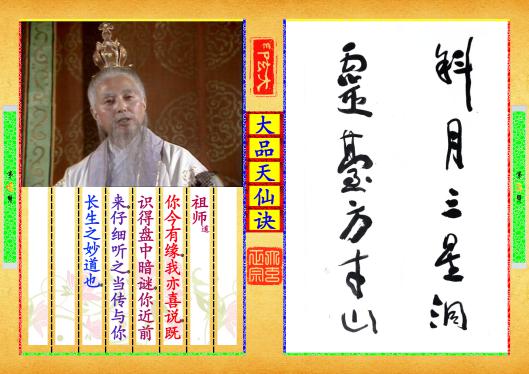 斜月三星洞
靈臺方寸山
大品天仙诀
祖师道
你今有缘,我亦喜说.既
识得盘中暗谜,你近前
来.仔细听之,当传与你
长生之妙道也.